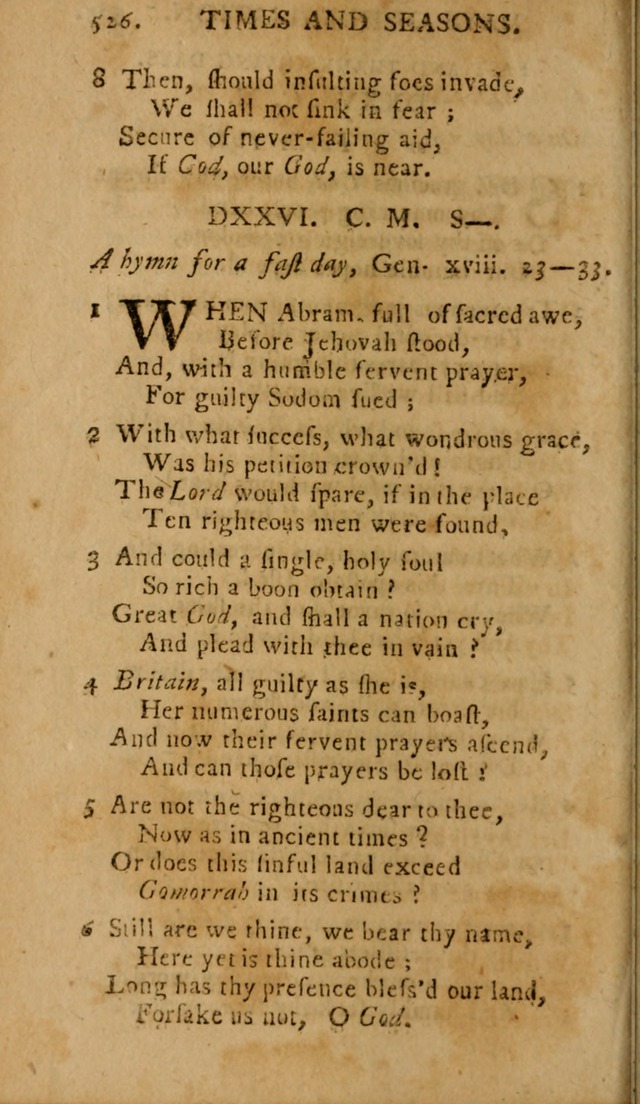 526. TIMES AND SEASONS.
8 Then, ſhould inſulting foes invade,
We ſhall not ſink in fear ;
Secure of never-failing aid,
If God, our God, is near.
DXXVI. C. M. S—.
A hymn for a faſt day, Gen. xviii. 23—33.
1 WHEN Abram, full of ſacred awe,
Before Jehovah ſtood,
And, with a humble fervent prayer,
For guilty Sodom ſued ;
2 With what ſucceſs, what wondrous grace,
Was his petition crown'd !
The Lord would ſpare, if in the place
Ten righteous men were found,
3 And could a ſingle, holy ſoul
So rich a boon obtain ?
Great God, and ſhall a nation cry,
And plead with thee in vain ?
4 Britain, all guilty as ſhe is,
Her numerous ſaints can boaſt,
And now their fervent prayers aſcend,
And can thoſe prayers be loſt ?
5 Are not the righteous dear to thee,
Now as in ancient times ?
Or does this ſinful land exceed
Gomorrah in its crimes ?
6 Still are we thine, we bear thy name,
Here yet is thine abode ;
Long has thy preſence bleſs'd our land,
Forſake us not, O God.